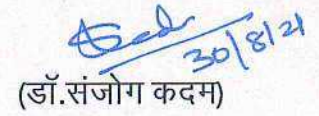 30/8/21
(डॉ.संजोग कदम)